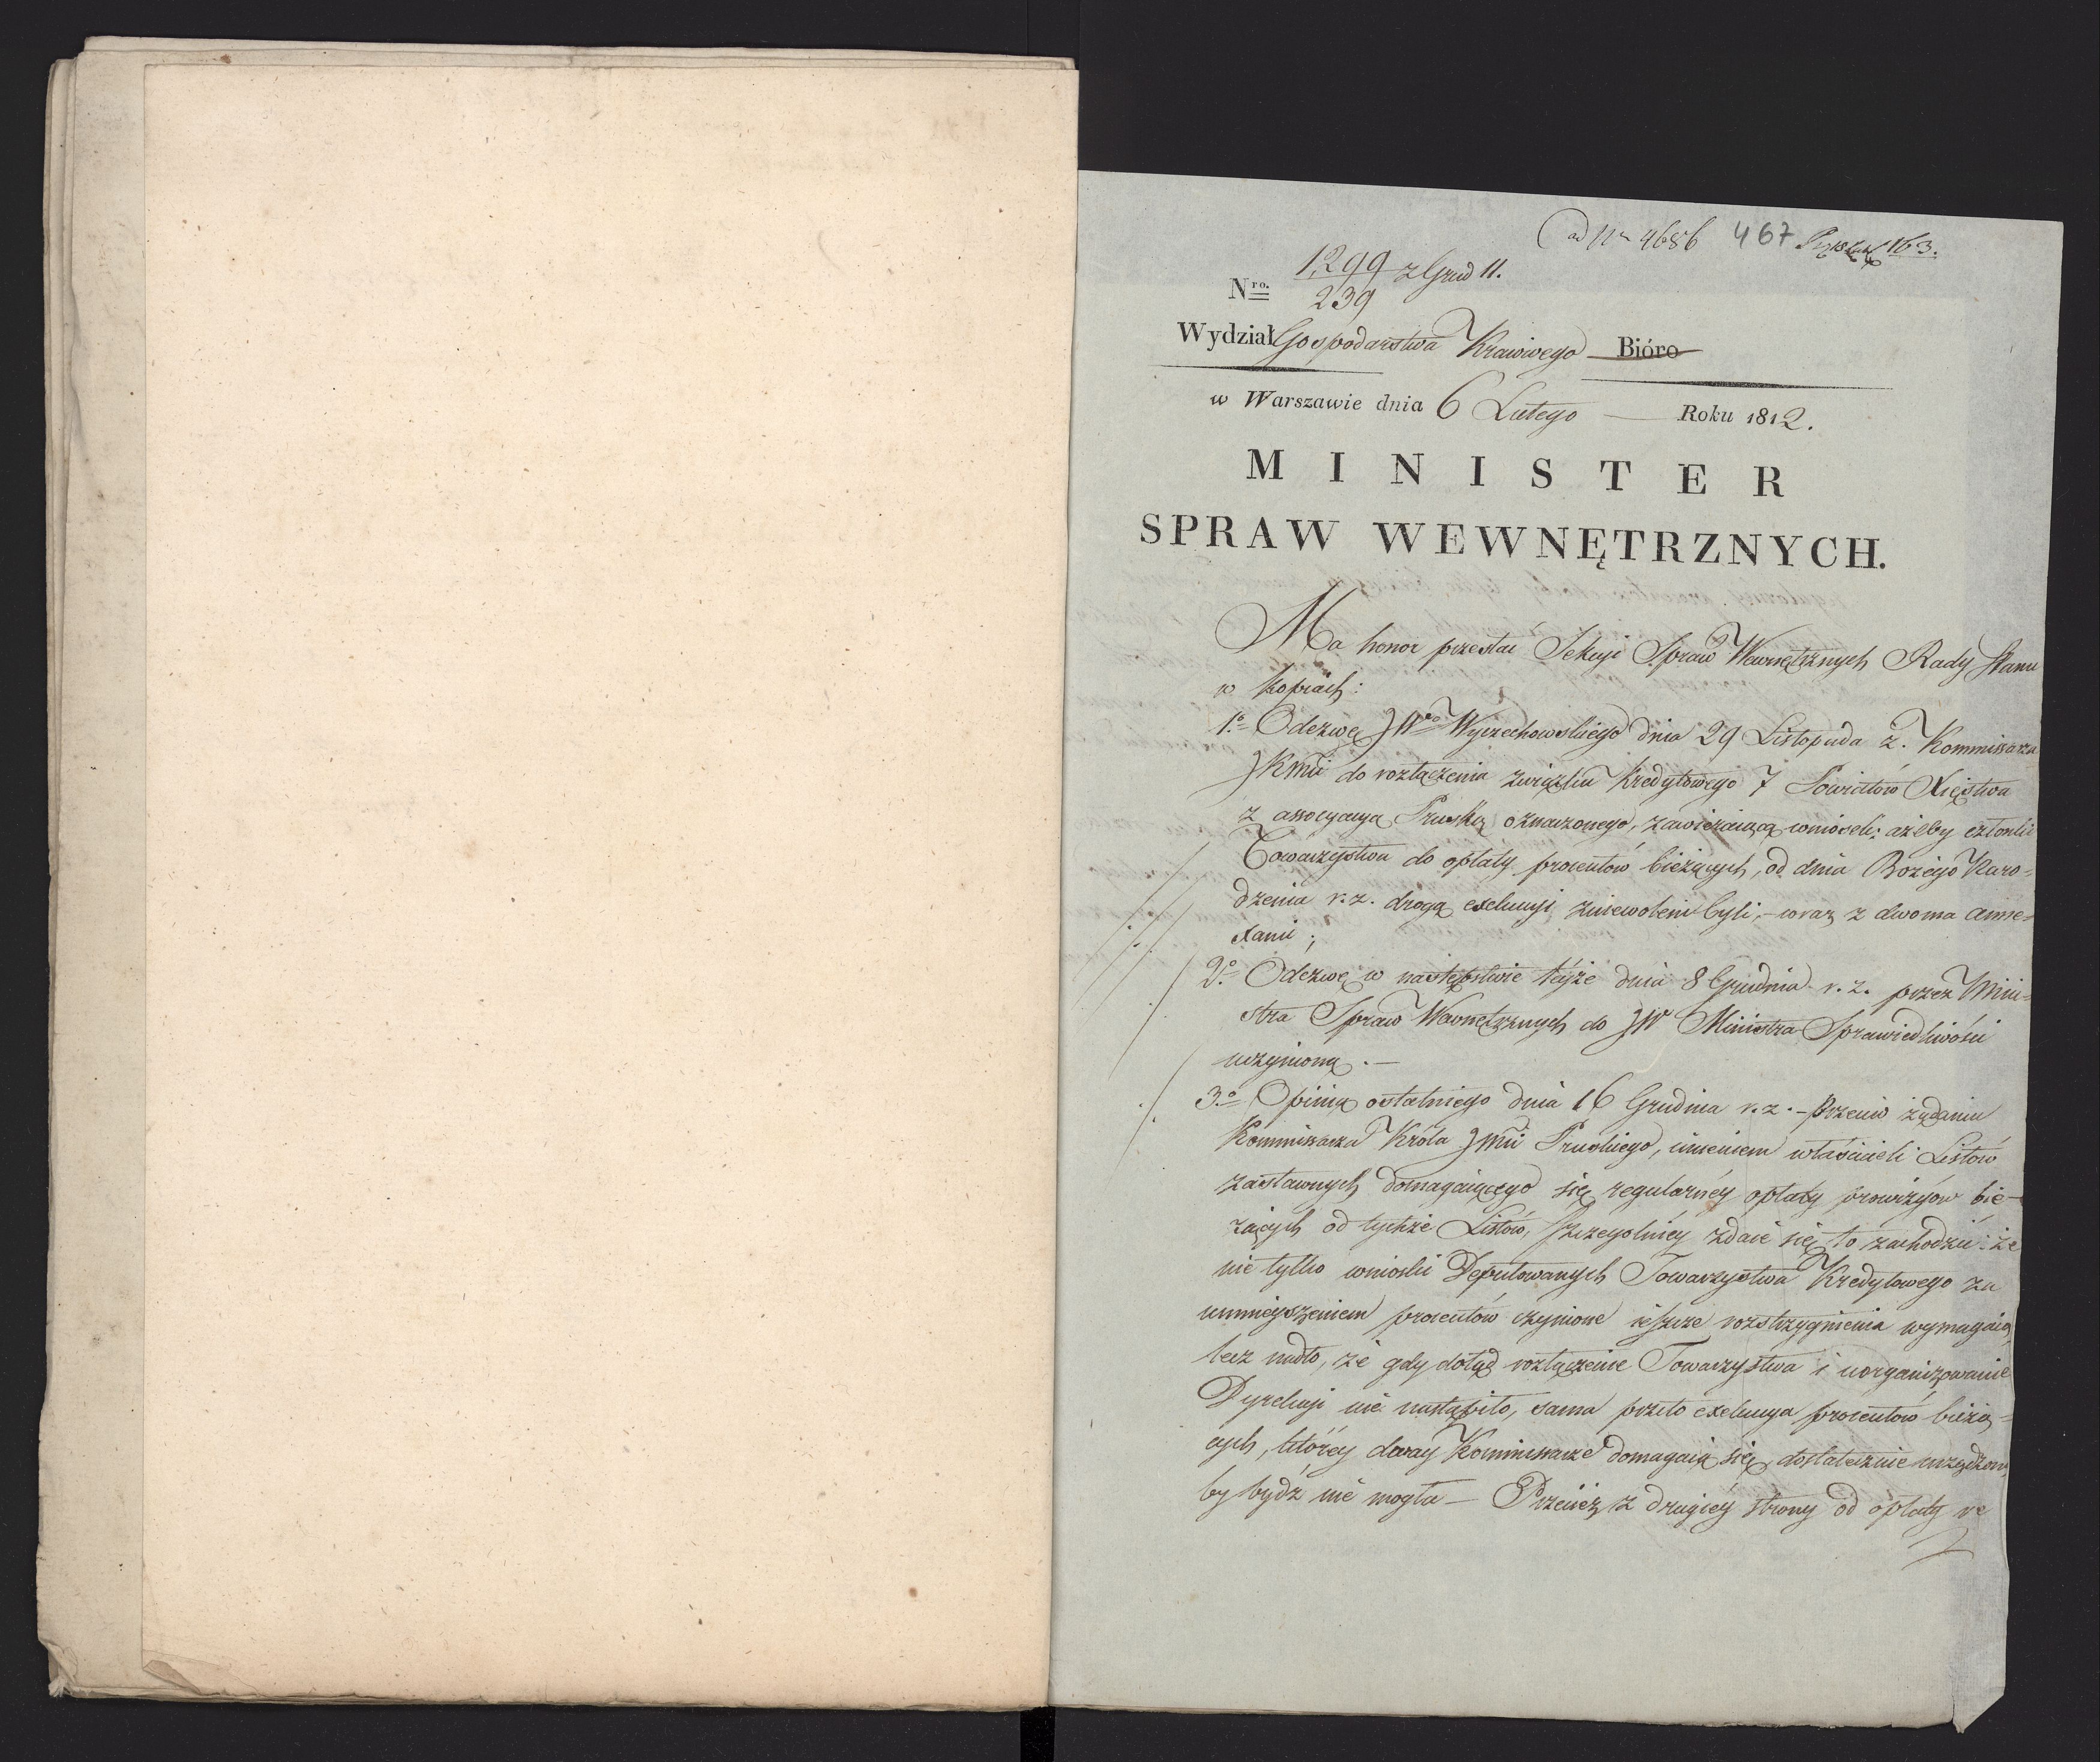 ad Nr 4686 467 163.
1299 z Grud 11.
Nro. 239
Wydział Gospodarstwa Kraiowego Bióro
w Warszawie dnia 6 Lutego Roku 1812.
MINISTER
SPRAW WEWNĘTRZNYCH.
Ma honor przesłać Sekcyi Spraw Wewnętrznych Rady Stanu
w kopiach:
1o Odezwę JWo Wyczechowskiego dnia 29 Listopada z. Kommissarza
JKmci do rozłączenia związku Kredytowego 7 Powiatów Xięstwa
z associacyą Pruską oznaczonego, zawieraiącą wniosek: ażeby członki
Towarzystwa do opłaty procentów bieżących, od dnia Bożego Naro-
dzenia r.z. drogą exekucyi zniewoleni byli, – wraz z dwoma anne-
xami;
2o Odezwę w następstwie teyże dnia 8 Grudnia r.z. przez Mini-
stra Spraw Wewnętrznych do JW Ministra Sprawiedliwości
uczynioną. —
3o Opinią ostatniego dnia 16 Grudnia r.z. – Przeciw żądaniu
Kommissarza Króla Jmci Pruskiego, imieniem właścicieli Listów
zastawnych domagaiącego się regularnéy opłaty prowizyów bie-
żących od tychże Listów, szczególniéy zdaie się to zachodzić: że
nie tylko wnioski Deputowanych Towarzystwa Kredytowego za
umnieyszeniem procentów czynione ieszcze rozstrzygnienia wymagaią,
lecz nadto, że gdy dotąd rozłączenie Towarzystwa i uorganizowanie
Dyrekcyi nie nastąpiło, sama przeto exekucya procentów bieżą-
cych, któréy Kommissarze domagaią się, dostatecznie urządzon
by bydź nie mogła — Przecież z drugiéy strony od opłaty re